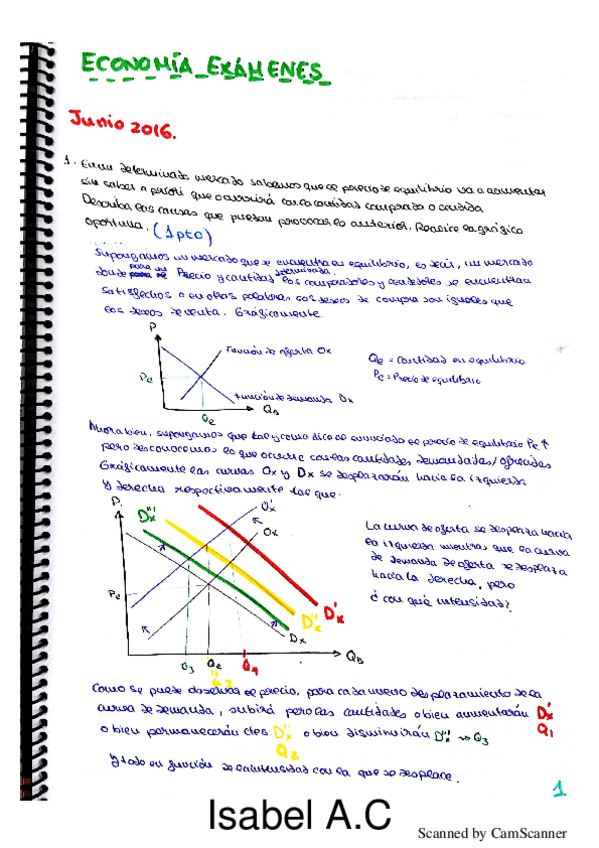 ECONOMÍA EXÁMENES
Junio 2016.
1. En un determinado mercado sabemos que el precio de equilibrio va a aumentar
sin saber a priori que ocurrirá con la cantidad comprada o vendida
Describa las causas que puedan provocar lo anterior. Realice la gráfica
oportuna. (1pto)
Supongamos un mercado que se encuentra en equilibrio, es decir, un mercado
donde para un Precio y cantidad determinada, los compradores y vendedores se encuentran
satisfechos o en otras palabras los deseos de compra son iguales que
los deseos de venta. Gráficamente
P
función de oferta Ox
Qe = cantidad en equilibrio
Pe = Precio de equilibrio
Pe
función de demanda Dx
Qe
Ahora bien, supongamos que tal y como dice el enunciado el precio de equilibrio Pe↑
pero desconocemos lo que ocurre con las cantidades demandadas/ofrecidas
Gráficamente las curvas Ox y Dx se desplazarán hacia la izquierda
y derecha respectivamente tal que:
P.
D'''x
O'x
Ox
La curva de oferta se desplaza hacia
la izquierda mientras que la curva
de demanda de oferta se desplaza
hacia la derecha, pero
¿con qué intensidad?
Pe
D''x
D'x
Dx
Q3
Qe
Q1
"
Q2
Como se puede observar el precio, para cada nuevo desplazamiento de la
curva de demanda, subirá pero las cantidades o bien aumentarán D'x
Q1
o bien permanecerán ctes D''x o bien disminuirán D'''x → Q3
Q2
Y todo en función de la intensidad con la que se desplace.
1
Isabel A.C
Scanned by CamScanner